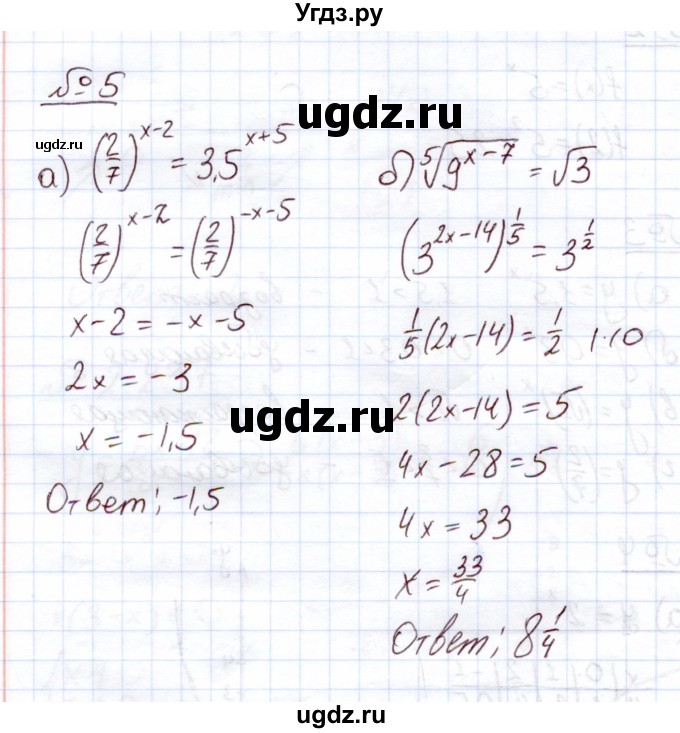 Угдз.ру
№5
ugdz.ru
а) (2/7)^(x-2) = 3,5^(x+5)
(2/7)^(x-2) = (2/7)^(-x-5)
x-2 = -x-5
2x = -3
x = -1,5
Ответ: -1,5
б) ⁵√(9^(x-7)) = √3
(3^(2x-14))^(1/5) = 3^(1/2)
1/5(2x-14) = 1/2 |·10
2(2x-14) = 5
4x-28 = 5
4x = 33
x = 33/4
Ответ: 8 1/4
ugdz.ru
ugdz.ru
ugdz.ru
ugdz.ru